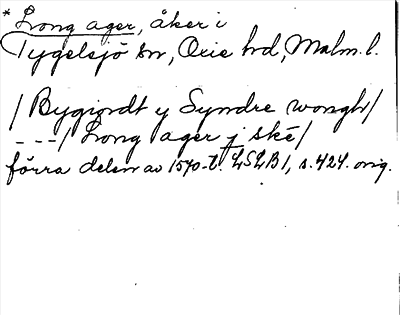 * Long ager, åker i
Tygelsjö sn, Oxie hd, Malm. l.
/ Bygiordt y Syndre wongh/
---/ Long ager j ske/
förra delen av 1570-t. LSLB1, s. 424. orig.